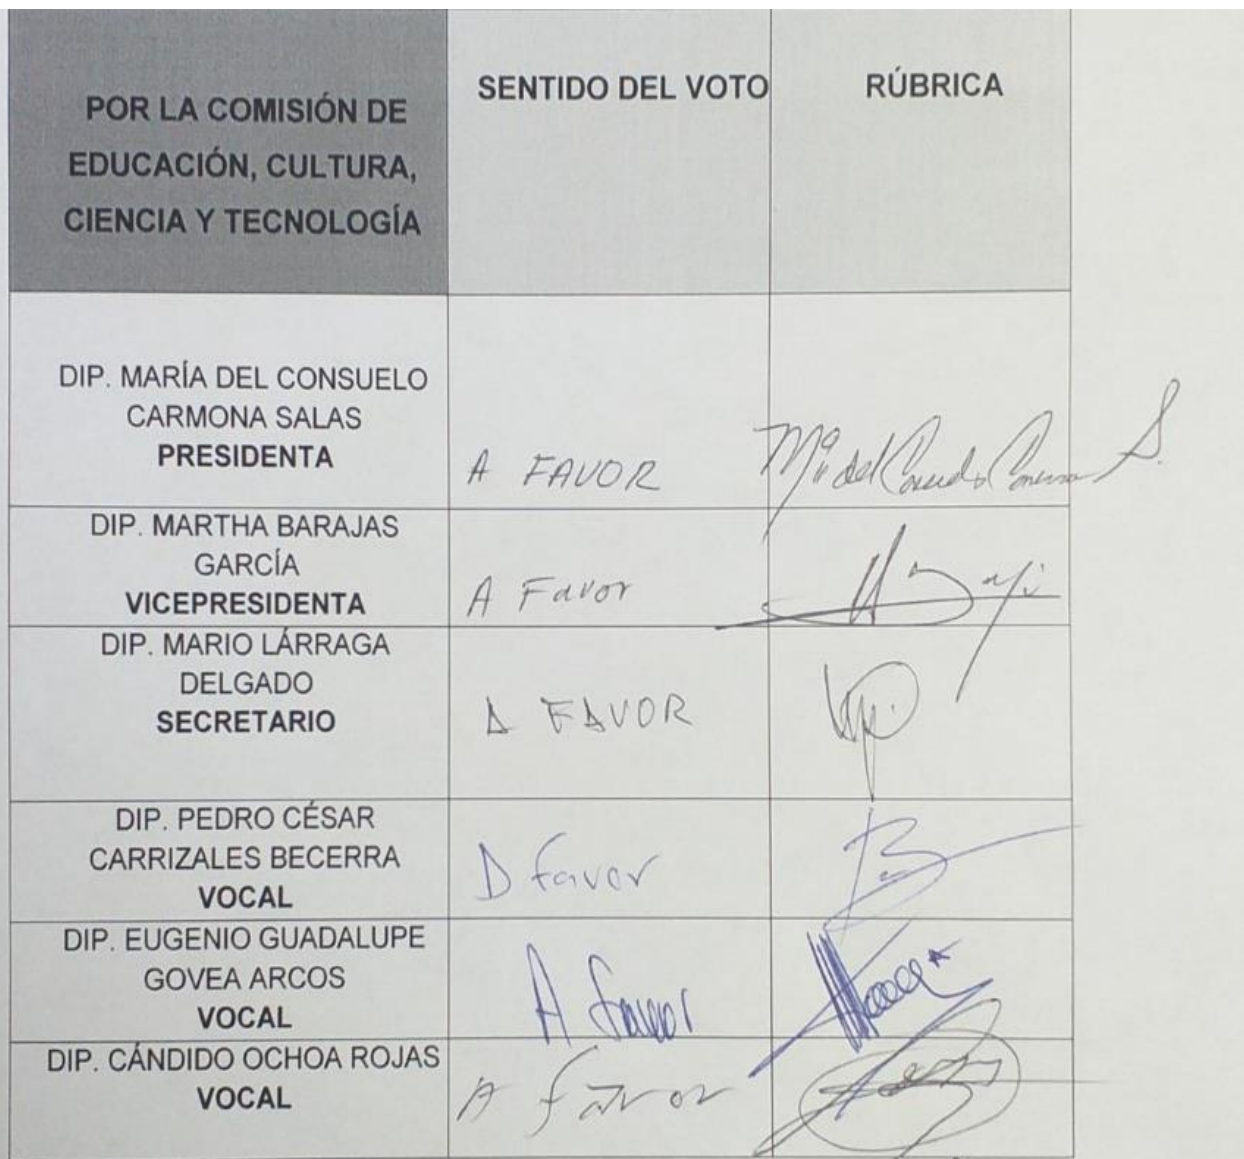 POR LA COMISIÓN DE
EDUCACIÓN, CULTURA,
CIENCIA Y TECNOLOGÍA
SENTIDO DEL VOTO
RÚBRICA
DIP. MARÍA DEL CONSUELO
CARMONA SALAS
PRESIDENTA
A FAVOR
Mª del Consuelo Carmona S.
DIP. MARTHA BARAJAS
GARCÍA
VICEPRESIDENTA
A Favor
DIP. MARIO LÁRRAGA
DELGADO
SECRETARIO
A FAVOR
DIP. PEDRO CÉSAR
CARRIZALES BECERRA
VOCAL
A favor
DIP. EUGENIO GUADALUPE
GOVEA ARCOS
VOCAL
A favor
DIP. CÁNDIDO OCHOA ROJAS
VOCAL
A favor